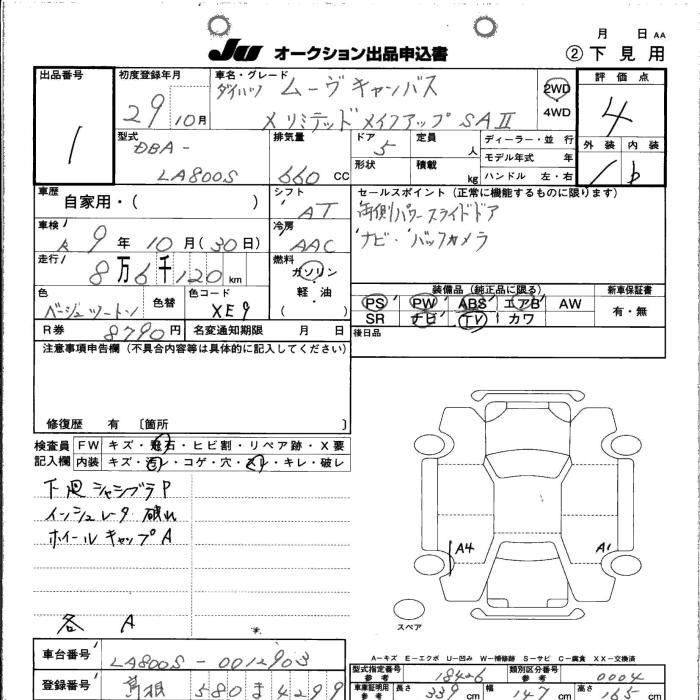 月 日 AA
JU オークション出品申込書 ②下見用
出品番号 1
初度登録年月 29年 10月
車名・グレード ダイハツ ムーヴキャンバス
X リミテッド メイクアップ SAⅡ
2WD
4WD
評価点 4
外装 内装
型式 DBA-
LA800S
排気量 660 CC
ドア 5
形状
定員 人
積載 kg
ディーラー・並行
モデル年式 年
ハンドル 左・右
車歴 自家用・( )
シフト AT
セールスポイント (正常に機能するものに限ります)
両側パワースライドドア
ナビ・バックカメラ
車検 R 9年 10月(30日)
冷房 AAC
走行 8万6千120 km
燃料 ガソリン
軽・油
( )
色 ベージュツートン
色替
色コード XE9
装備品 (純正品に限る)
PS PW ABS エアB AW
SR ナビ TV カワ
新車保証書
有・無
R券 8790円
名変通知期限 月 日
後日品
注意事項申告欄 (不具合内容等は具体的に記入してください)
修復歴 有 〔箇所 〕
検査員
記入欄
FW キズ・飛石・ヒビ割・リペア跡・X要
内装 キズ・汚レ・コゲ・穴・スレ・キレ・破レ
下廻シャシブラP
インシュレータ 破れ
ホイールキャップA
各 A
A4
A1
スペア
A-キズ E-エクボ U-凹み W-補修跡 S-サビ C-腐食 XX-交換済
車台番号 LA800S-0012903
型式指定番号 参考 18426
類別区分番号 参考 0004
登録番号 島根 580 ま 4299
車車証明用 参考 長さ 339 cm 幅 147 cm 高さ 165 cm